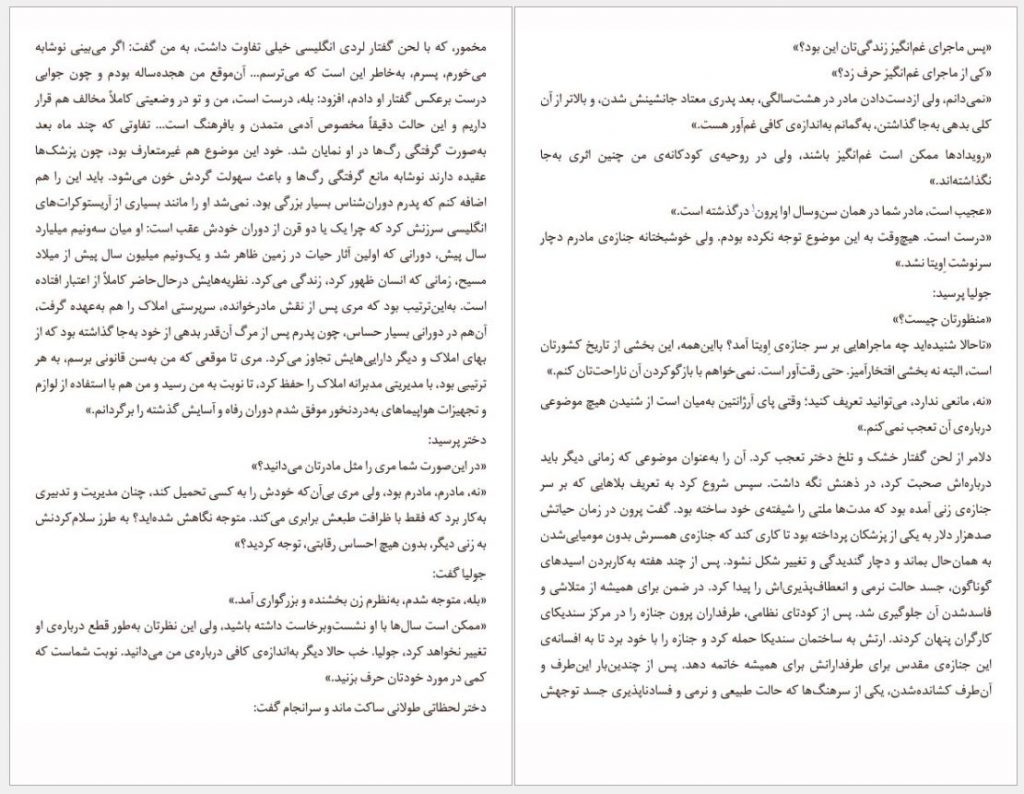 «پس ماجرای غم‌انگیز زندگی‌تان این بود؟»
«کی از ماجرای غم‌انگیز حرف زد؟»
«نمی‌دانم، ولی ازدست‌دادن مادر در هشت‌سالگی، بعد پدری معتاد جانشینش شدن، و بالاتر از آن
کلی بدهی به‌جا گذاشتن، به‌گمانم به‌اندازه‌ی کافی غم‌آور هست.»
«رویدادها ممکن است غم‌انگیز باشند، ولی در روحیه‌ی کودکانه‌ی من چنین اثری به‌جا
نگذاشته‌اند.»
«عجیب است، مادر شما در همان سن‌وسال اوا پرون۱ درگذشته است.»
«درست است. هیچ‌وقت به این موضوع توجه نکرده بودم. ولی خوشبختانه جنازه‌ی مادرم دچار
سرنوشت اِویتا نشد.»
جولیا پرسید:
«منظورتان چیست؟»
«تاحالا شنیده‌اید چه ماجراهایی بر سر جنازه‌ی اِویتا آمد؟ بااین‌همه، این بخشی از تاریخ کشورتان
است، البته نه بخشی افتخارآمیز. حتی رقت‌آور است. نمی‌خواهم با بازگوکردن آن ناراحت‌تان کنم.»
«نه، مانعی ندارد، می‌توانید تعریف کنید؛ وقتی پای آرژانتین به‌میان است از شنیدن هیچ موضوعی
درباره‌ی آن تعجب نمی‌کنم.»
دلامر از لحن گفتار خشک و تلخ دختر تعجب کرد. آن را به‌عنوان موضوعی که زمانی دیگر باید
درباره‌اش صحبت کرد، در ذهنش نگه داشت. سپس شروع کرد به تعریف بلاهایی که بر سر
جنازه‌ی زنی آمده بود که مدت‌ها ملتی را شیفته‌ی خود ساخته بود. گفت پرون در زمان حیاتش
صدهزار دلار به یکی از پزشکان پرداخته بود تا کاری کند که جنازه‌ی همسرش بدون مومیایی‌شدن
به همان‌حال بماند و دچار گندیدگی و تغییر شکل نشود. پس از چند هفته به‌کاربردن اسیدهای
گوناگون، جسد حالت نرمی و انعطاف‌پذیری‌اش را پیدا کرد. در ضمن برای همیشه از متلاشی و
فاسدشدن آن جلوگیری شد. پس از کودتای نظامی، طرفداران پرون جنازه را در مرکز سندیکای
کارگران پنهان کردند. ارتش به ساختمان سندیکا حمله کرد و جنازه را با خود برد تا به افسانه‌ی
این جنازه‌ی مقدس برای طرفدارانش برای همیشه خاتمه دهد. پس از چندین‌بار این‌طرف و
آن‌طرف کشانده‌شدن، یکی از سرهنگ‌ها که حالت طبیعی و نرمی و فسادناپذیری جسد توجهش
مخمور، که با لحن گفتار لردی انگلیسی خیلی تفاوت داشت، به من گفت: اگر می‌بینی نوشابه
می‌خورم، پسرم، به‌خاطر این است که می‌ترسم... آن‌موقع من هجده‌ساله بودم و چون جوابی
درست برعکس گفتار او دادم، افزود: بله، درست است، من و تو در وضعیتی کاملاً مخالف هم قرار
داریم و این حالت دقیقاً مخصوص آدمی متمدن و بافرهنگ است... تفاوتی که چند ماه بعد
به‌صورت گرفتگی رگ‌ها در او نمایان شد. خود این موضوع هم غیرمتعارف بود، چون پزشک‌ها
عقیده دارند نوشابه مانع گرفتگی رگ‌ها و باعث سهولت گردش خون می‌شود. باید این را هم
اضافه کنم که پدرم دوران‌شناس بسیار بزرگی بود. نمی‌شد او را مانند بسیاری از آریستوکرات‌های
انگلیسی سرزنش کرد که چرا یک یا دو قرن از دوران خودش عقب است: او میان سه‌ونیم میلیارد
سال پیش، دورانی که اولین آثار حیات در زمین ظاهر شد و یک‌ونیم میلیون سال پیش از میلاد
مسیح، زمانی که انسان ظهور کرد، زندگی می‌کرد. نظریه‌هایش درحال‌حاضر کاملاً از اعتبار افتاده
است. به‌این‌ترتیب بود که مری پس از نقش مادرخوانده، سرپرستی املاک را هم به‌عهده گرفت،
آن‌هم در دورانی بسیار حساس، چون پدرم پس از مرگ آن‌قدر بدهی از خود به‌جا گذاشته بود که از
بهای املاک و دیگر دارایی‌هایش تجاوز می‌کرد. مری تا موقعی که من به‌سن قانونی برسم، به هر
ترتیبی بود، با مدیریتی مدبرانه املاک را حفظ کرد، تا نوبت به من رسید و من هم با استفاده از لوازم
و تجهیزات هواپیماهای به‌دردنخور موفق شدم دوران رفاه و آسایش گذشته را برگردانم.»
دختر پرسید:
«در این‌صورت شما مری را مثل مادرتان می‌دانید؟»
«نه، مادرم، مادرم بود، ولی مری بی‌آن‌که خودش را به کسی تحمیل کند، چنان مدیریت و تدبیری
به‌کار برد که فقط با ظرافت طبعش برابری می‌کند. متوجه نگاهش شده‌اید؟ به طرز سلام‌کردنش
به زنی دیگر، بدون هیچ احساس رقابتی، توجه کردید؟»
جولیا گفت:
«بله، متوجه شدم، به‌نظرم زن بخشنده و بزرگواری آمد.»
«ممکن است سال‌ها با او نشست‌وبرخاست داشته باشید، ولی این نظرتان به‌طور قطع درباره‌ی او
تغییر نخواهد کرد، جولیا. خب حالا دیگر به‌اندازه‌ی کافی درباره‌ی من می‌دانید. نوبت شماست که
کمی در مورد خودتان حرف بزنید.»
دختر لحظاتی طولانی ساکت ماند و سرانجام گفت: